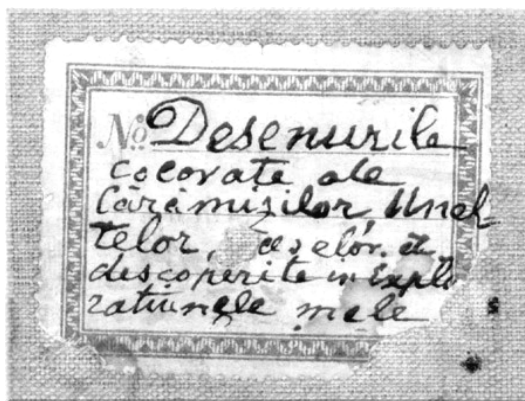 No Desenurile
colorate ale
Cărămizilor, Unel-
telor, etc.
descoperite in Explo
rațiunele mele